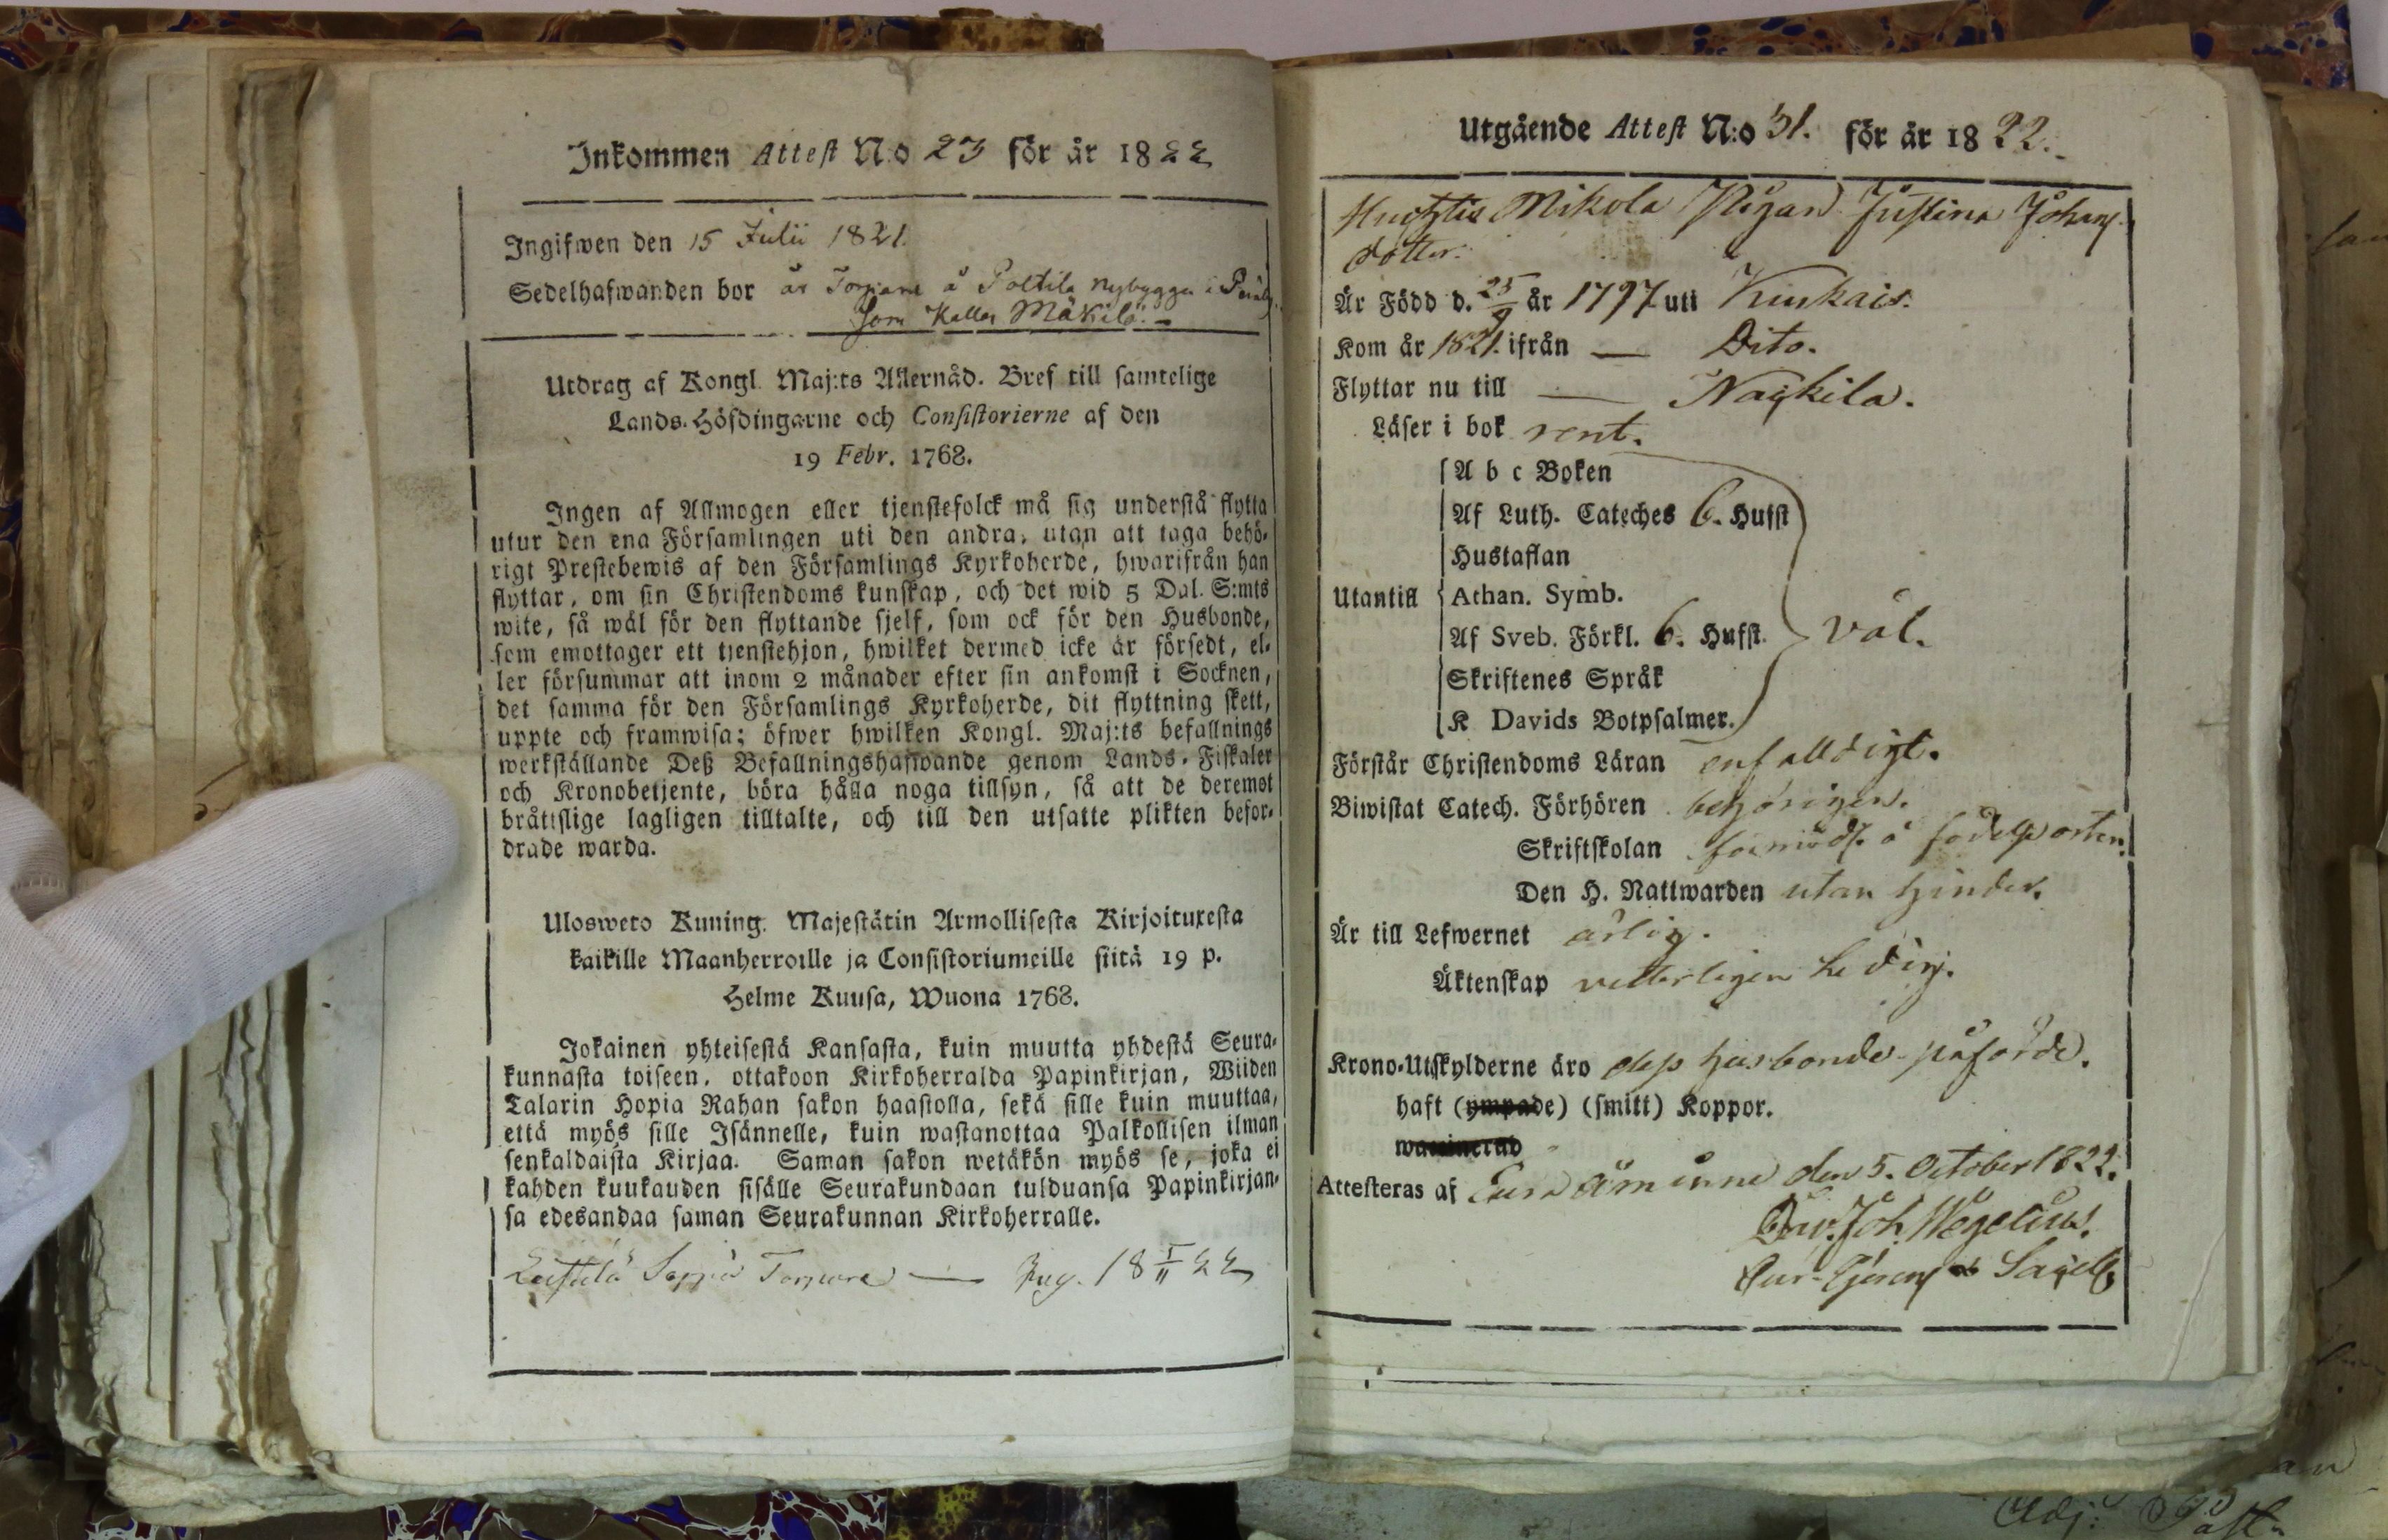 Inkommen Attest N:o 23 för år 1822
Ingifwen den 15 Julii 1821.
Sedelhafwanden bor är Torpare å Poltila nybygge i
som kallas Mäkilä.
Utdrag af Kongl. Maj:ts Allernåd. Bref till samtelige
Lands-Höfdingarne och Consistorierne af den
19 Febr. 1768.
Ingen af Allmogen eller tjenstefolck må sig understå flytta
utur den ena Församlingen uti den andra, utan att taga behö-
rigt Prestebewis af den Församlings Kyrkoherde, hwarifrån han
flyttar, om sin Christendoms kunskap, och det wid 5 Dal. S:mts
wite, så wäl för den flyttande sjelf, som ock för den Husbonde,
som emottager ett tjenstehjon, hwilket dermed icke är försedt, el-
ler försummar att inom 2 månader efter sin ankomst i Socknen,
det samma för den Församlings Kyrkoherde, dit flyttning skett,
uppte och framwisa; öfwer hwilken Kongl. Maj:ts befallnings
werkställande Deß Befallningshafwande genom Lands-Fiskaler
och Kronobetjente, böra hålla noga tillsyn, så att de deremot
bråttslige lagligen tilltalte, och till den utsatte plikten befor-
drade warda.
Ulosweto Kuning. Majestätin Armollisesta Kirjoituxesta
kaikille Maanherroille ja Consistoriumeille siitä 19 p.
Helme Kuusa, Wuona 1768.
Jokainen yhteisestä Kansasta, kuin muutta yhdestä Seura-
kunnasta toiseen, ottakoon Kirkoherralda Papinkirjan, Wiiden
Talarin Hopia Rahan sakon haastolla, sekä sille kuin muuttaa,
että myös sille Isännelle, kuin wastanottaa Palkollisen ilman
senkaldaista Kirjaa. Saman sakon wetäkön myös se, joka ei
kahden kuukauden sisälle Seurakundaan tulduansa Papinkirjan-
sa edesandaa saman Seurakunnan Kirkoherralle.
Torpare — 18 1/11 22
Utgående Attest N:o 31. för år 1822.
Mikola Pigan Justina Johans-
dotter.
Är Född d. 25/9 år 1797 uti Kiukais.
Kom år 1821. ifrån — Dito.
Flyttar nu till — Nackila.
Läser i bok rent.
A b c Boken
Af Luth. Cateches 6. Hufst
Hustaflan
Utantill Athan. Symb.
Af Sveb. Förkl. 6. Hufst. väl.
Skriftenes Språk
K Davids Botpsalmer.
Förstår Christendoms Läran enfalldigt.
Biwistat Catech. Förhören behörigen.
Skriftskolan förmodl. å födelseorten.
Den H. Nattwarden utan hinder.
Är till Lefwernet ärlig.
Äktenskap vetterligen ledig.
Krono-Utskylderne äro dess husbonde påförde.
haft (ympade) (smitt) Koppor.
waccinerad
Attesteras af Eura Åminne den 5. October 1822.
Dav. Joh. Wegelius.
Adj: